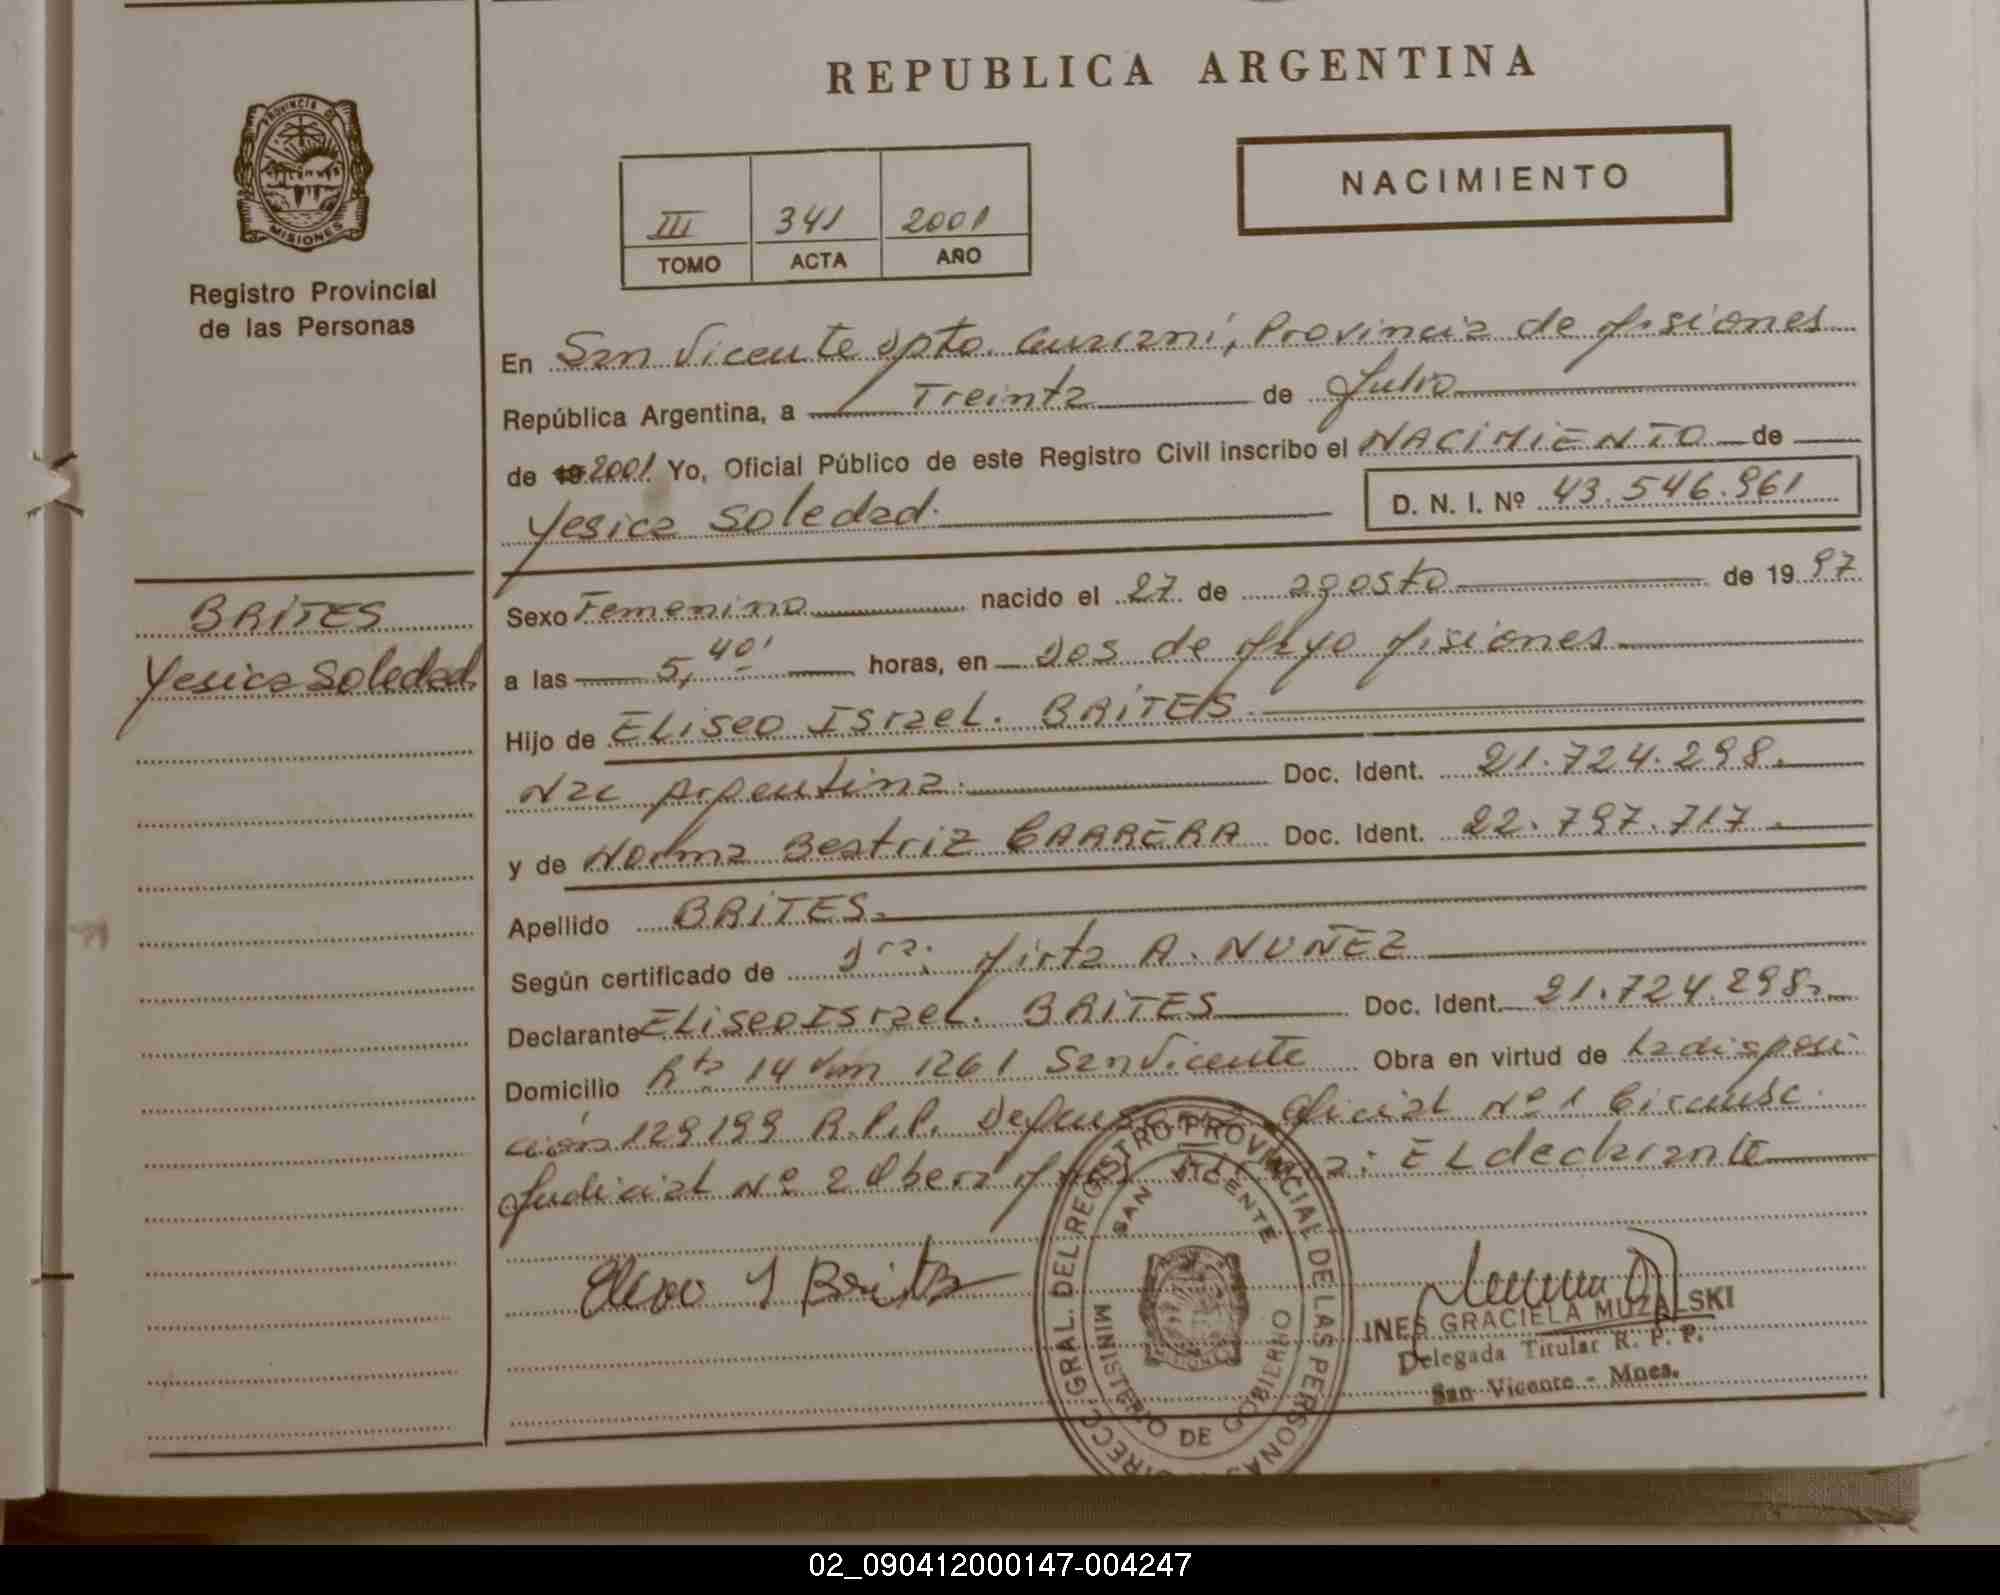 REPUBLICA ARGENTINA
NACIMIENTO
III 341 2001
TOMO ACTA AÑO
PROVINCIA DE
MISIONES
Registro Provincial
de las Personas
BRITES
Yesica Soledad
En San Vicente Dpto. Guaraní, Provincia de Misiones
República Argentina, a Treinta de Julio
de 19 2001. Yo, Oficial Público de este Registro Civil inscribo el NACIMIENTO de
Yesica Soledad. D. N. I. Nº 43.546.961
Sexo Femenino nacido el 27 de agosto de 19 97
a las 5,40' horas, en Dos de Mayo Misiones
Hijo de ELISEO ISRAEL. BRITES
Nac Argentina. Doc. Ident. 21.724.298.
y de Norma Beatriz CARRERA Doc. Ident. 22.797.717.
Apellido BRITES.
Según certificado de Dra: Mirta A. NUÑEZ
Declarante ELISEO ISRAEL. BRITES Doc. Ident. 21.724.298.
Domicilio Rta 14 km 1261 San Vicente Obra en virtud de La disposi
ción 129199 R.P.P. Oficial Nº 1 Circunsc.
Judicial Nº 2 Obera EL declarante
I Brites
DIRECC. GRAL. DEL REGISTRO PROVINCIAL DE LAS PERSONAS
SAN VICENTE
MINISTERIO DE GOBIERNO
INES GRACIELA MUZALSKI
Delegada Titular R. P. P.
San Vicente - Mnes.
02_090412000147-004247